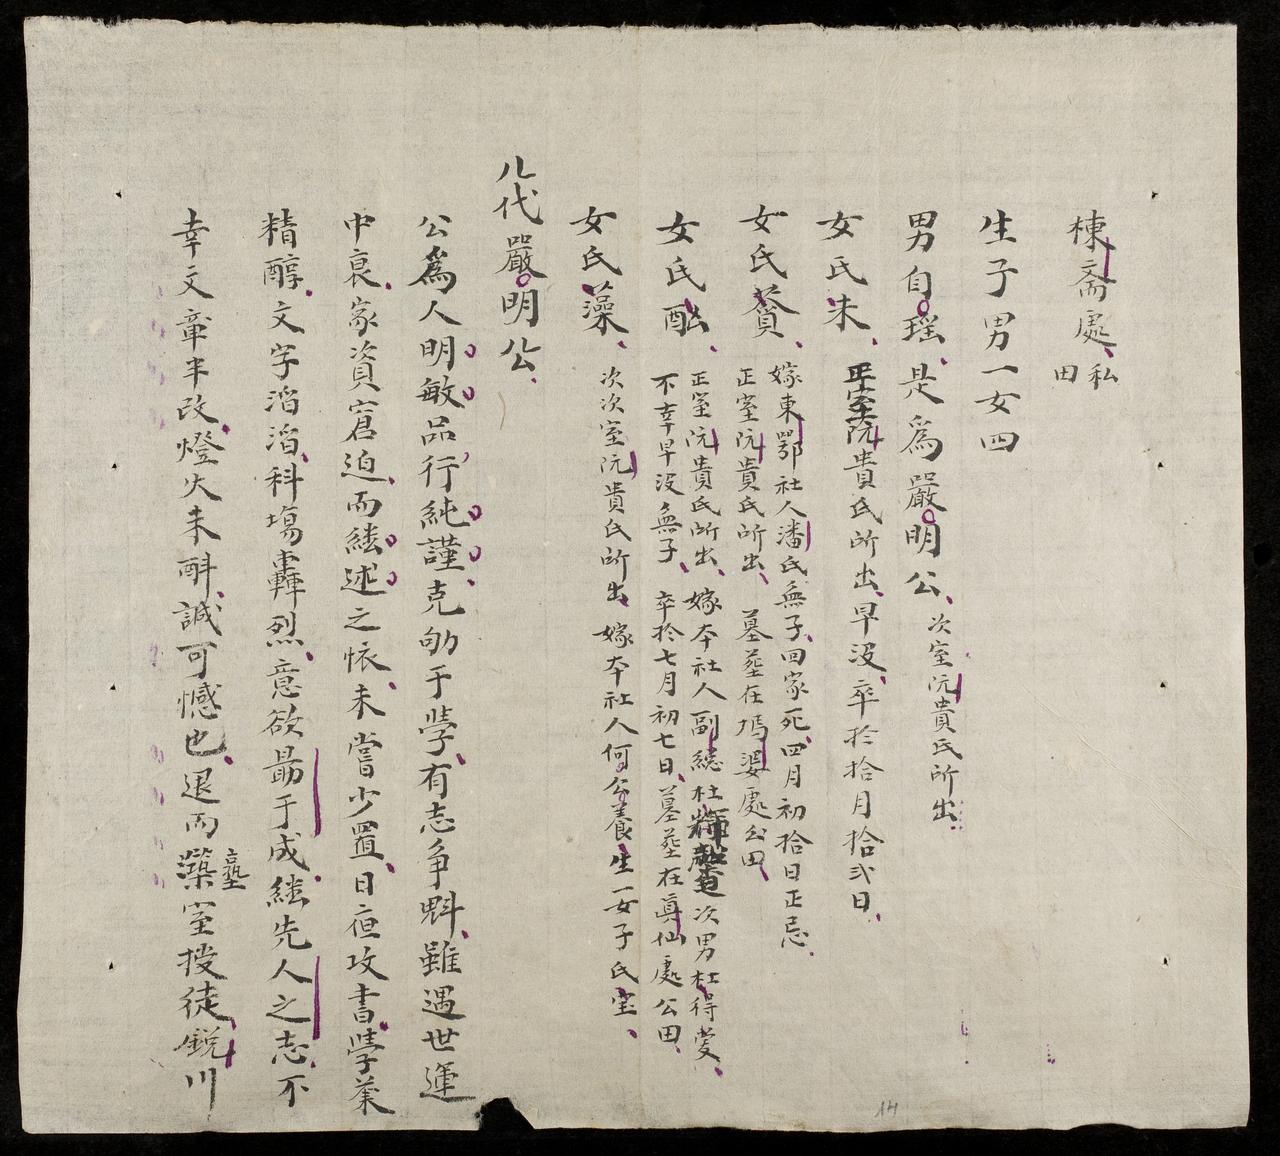 棟斋處私田
生子男一女四
男自瑶是爲嚴明公次室阮貴氏所出
女氏未正室阮貴氏所出早没卒於拾月拾弍日
女氏蕡嫁東鄂社人潘氏無子回家死四月初拾日正忌
正室阮貴氏所出墓葬在塢婆處公田
女氏酝正室阮貴氏所出嫁本社人副總杜輝㿝次男杜得爱
不幸早没無子卒於七月初七日墓葬在真仙處公田
女氏藻次次室阮貴氏所出嫁本社人何公養生一女子氏宝
八代嚴明公
公爲人明敏品行純謹克劬于學有志争魁雖遇世運
中衰家資窘迫而継述之懷未嘗少置日夜攻書學業
精醇文字滔滔科塲轟烈意欲勗于成継先人之志不
幸文章半改燈火未酧誠可憾也退而塾藥室授徒銳川